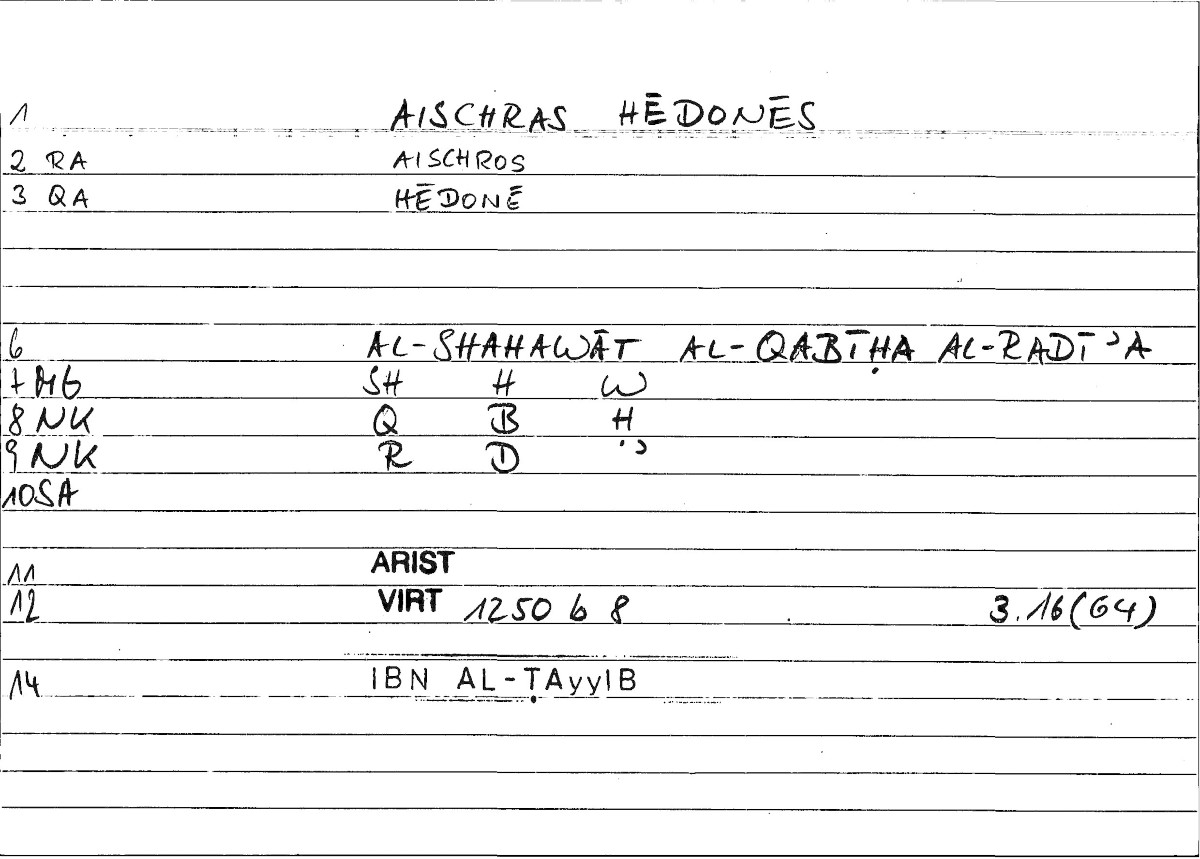 1 AISCHRAS HĒDONĒS
2 RA AISCHROS
3 QA HĒDONĒ
6 AL-SHAHAWĀT AL-QABĪḤA AL-RADĪʾA
7 MG SH H W
8 NK Q B Ḥ
9 NK R D ʾ
10 SA
11 ARIST
12 VIRT 1250 b 8 3.16(64)
14 IBN AL-ṬAyyIB